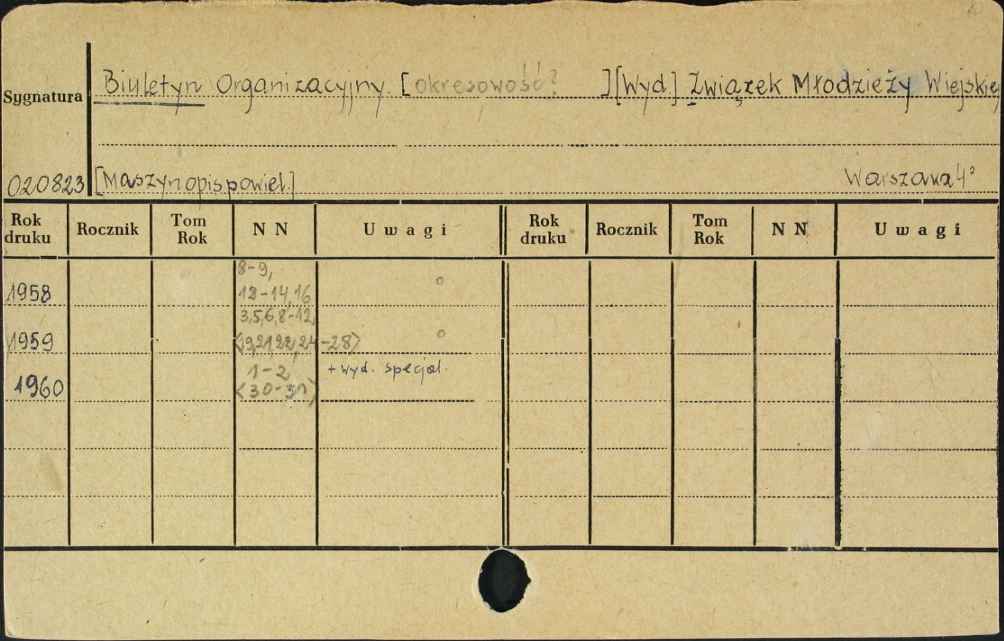 Biuletyn Organizacyjny. [okresowość? ] [Wyd.] Związek Młodzieży Wiejskiej
Sygnatura
020823 [Maszynopis powiel.] Warszawa 4°
Rok druku Rocznik Tom Rok N N Uwagi Rok druku Rocznik Tom Rok N N Uwagi
8-9,
1958 12-14,16
3,5,6,8-12,
1959 <19,21,22,24-28>
1-2 + wyd. specjal.
1960 <30-31>